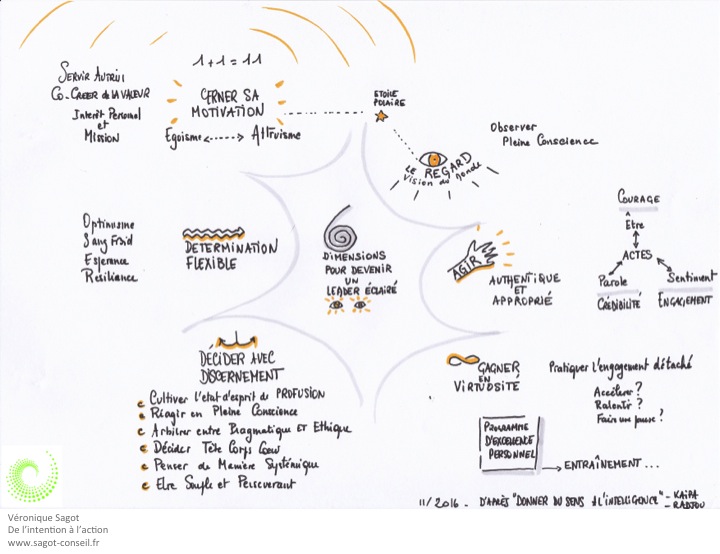 1 + 1 = 11
SERVIR AUTRUI
CO-CREER de LA VALEUR
Interêt Personnel
et
MISSION
CERNER SA
MOTIVATION
Egoïsme <-----> Altruisme
ETOILE
POLAIRE
LE REGARD
Vision du Monde
Observer
Pleine Conscience
Optimisme
Sang Froid
Esperance
Resilience
DETERMINATION
FLEXIBLE
DIMENSIONS
POUR DEVENIR
UN
LEADER ÉCLAIRÉ
AGIR
AUTHENTIQUE
ET
APPROPRIÉ
COURAGE
Être
ACTES
Parole
Sentiment
CRÉDIBILITÉ
ENGAGEMENT
DÉCIDER AVEC
DISCERNEMENT
Cultiver l'état d'esprit du PROFUSION
Réagir en Pleine Conscience
Arbitrer entre Pragmatique ET Ethique
Décider Tête Corps Coeur
Penser de Manière Systémique
Etre Souple et Perseverant
GAGNER
EN
VIRTUOSITÉ
Pratiquer l'engagement détaché
Accélérer ?
Ralentir ?
Faire une pause ?
PROGRAMME
D'EXCELLENCE
PERSONNEL
ENTRAÎNEMENT ...
11/2016 - D'APRÈS "DONNER DU SENS À L'INTELLIGENCE" - KAIPA
- RADJOU
Véronique Sagot
De l'intention à l'action
www.sagot-conseil.fr